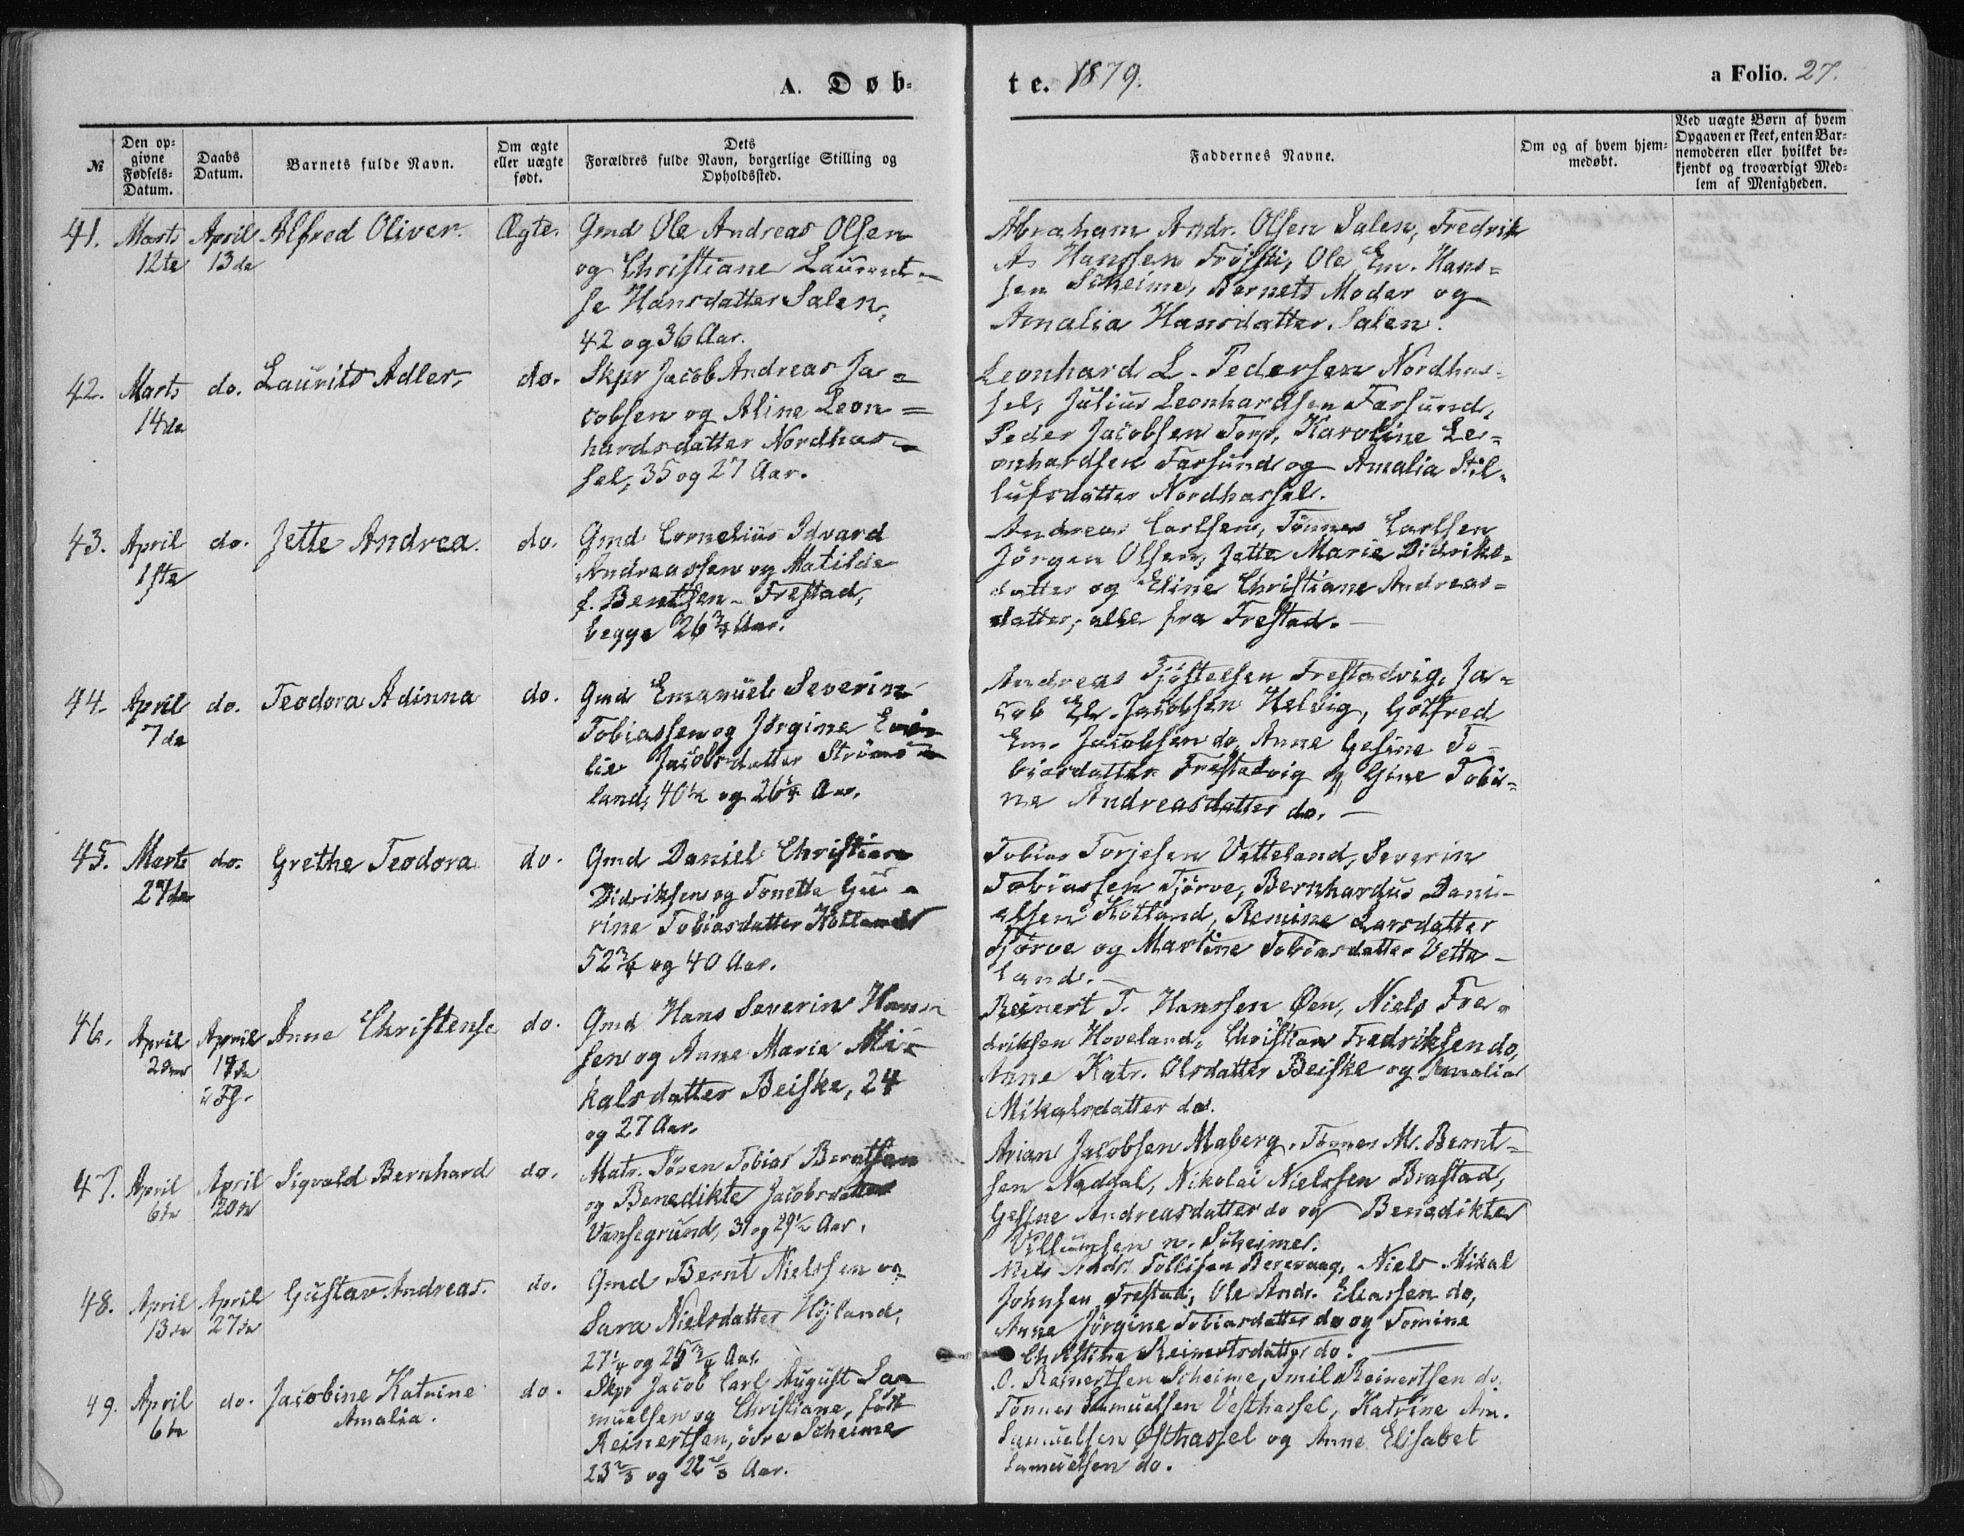 A. Døb-
te. 1879.
a Folio. 27.
№
Den op-
givne
Fødsels-
Datum.
Daabs
Datum.
Barnets fulde Navn.
Om ægte
eller uægte
født.
Dets
Forældres fulde Navn, borgerlige Stilling og
Opholdssted.
Faddernes Navne.
Om og af hvem hjem-
medøbt.
Ved uægte Børn af hvem
Opgaven er skeet, enten Bar-
nemoderen eller hvilket be-
kjendt og troværdigt Med-
lem af Menigheden.
41.
Marts
12te
April
13de
Alfred Oliver.
Ægte.
Gmd Ole Andreas Olsen
og Christiane Laurent-
se Hansdatter Salen,
42 og 36 Aar.
Abraham Andr. Olsen Salen, Fredrik
A. Hanssen, Ole Em. Hans-
sen Scheime, Barnets Moder og
Amalia Hansdatter Salen.
42.
Marts
14de
do.
Laurits Adler,
do.
Skpr Jacob Andreas Ja-
cobsen og Aline Leon-
hardsdatter Nordhas-
sel, 35 og 27 Aar.
Leonhard L. Pedersen Nordhas-
sel, Julius Leonhardsen Farsund,
Peder Jacobsen Torp, Karoline Le-
onhardsen Farsund og Amalia Stil-
lufsdatter Nordhassel.
43.
April
1ste
do.
Jette Andrea.
do.
Gmd Cornelius Edvard
Andreassen og Matilde
f. Bentsen - Frestad,
begge 26 Aar.
Andreas Carlsen, Tønnes Carlsen
Jørgen Olsen, Jette Marie Didriks-
datter og Eline Christiane Andreas-
datter, alle fra Frestad. —
44.
April
7de
do.
Teodora Adinna
do.
Gmd Emanuel Severin
Tobiassen og Jørgine Emi-
lie Jacobsdatter Strøms-
land, 40½ og 26¼ Aar.
Andreas Tjøstelsen Frestadvig, Ja-
cob El. Jacobsen Helvig, Gotfred
Em. Jacobsen do, Anne Gesine To-
biasdatter Frestadvig og Gine Tobi-
ne Andreasdatter do. —
45.
Marts
27de
do.
Grethe Teodora
do.
Gmd Daniel Christian
Didriksen og Tonette Gu-
rine Tobiasdatter Kotland
52¾ og 40 Aar.
Tobias Torjesen Vetteland, Severin
Tobiassen Tjørve, Bernhardus Dani-
elsen Kotland, Remine Larsdatter
Tjørve og Martine Tobiasdatter Vette-
land. —
46.
April
2den
April
17de
i Fh.
Anne Christense
do.
Gmd Hans Severin Hans-
sen og Anne Marie Mi-
kalsdatter Beiske, 24
og 27 Aar.
Reinert T. Hanssen Øen, Niels Fre-
driksen Hoveland, Christian Fredriksen do,
Anne Katr. Olsdatter Beiske og Amalia
Mikalsdatter do.
47.
April
6te
April
20de
Sigvald Bernhard
do.
Matr. Søren Tobias Berntsen
og Benedikte Jacobsdatter
Vansegrund, 31 og 29½ Aar.
Arian Jacobsen Maberg, Tønnes M. Bernt-
sen Nadgal, Nikolai Nielssen Brastad,
Gesine Andreasdatter do og Benedikte
Villumsen n. Scheime.
48.
April
13de
April
27de
Gustav Andreas.
do.
Gmd Bernt Nielssen og
Sara Nielsdatter Højland,
27¼ og 25¾ Aar.
Niels Andr. Tollisen Berevaag, Niels Mikal
Johnsen Frestad, Ole Andr. Eliassen do,
Anne Jørgine Tobiasdatter do og Tomine
Christine Reinertsdatter do. —
49.
April
6te
do.
Jacobine Katrine
Amalia.
do.
Skpr Jacob Carl August Sa-
muelsen og Christiane, født
Reinertsen, øvre Scheime
23⅔ og 22⅔ Aar.
O. Reinertsen Scheime, Emil Reinertsen do.
Tønnes Samuelsen Vesthassel, Katrine Am.
Samuelsen Østhassel og Anne Elisabet
Samuelsen do.